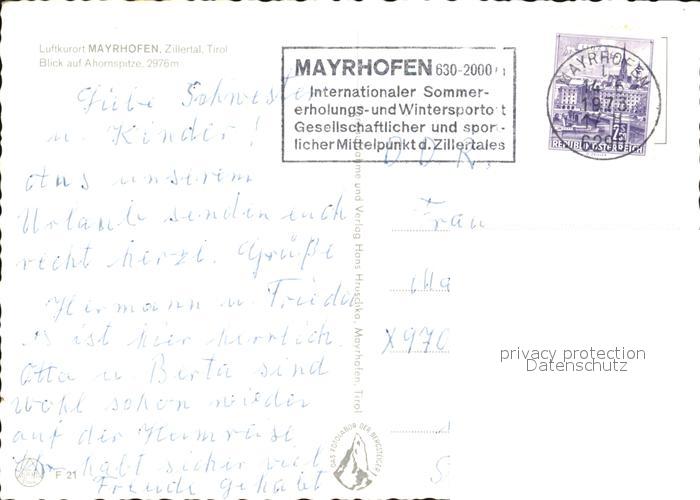 Luftkurort MAYRHOFEN, Zillertal, Tirol
Blick auf Ahornspitze, 2976m
Liebe Schwester
u. Kinder!
Aus unserem
Urlaub senden euch
recht herzl. Grüße
Hermann u. Frieda
Es ist hier herrlich.
Otto u. Berta sind
wohl schon wieder
auf der Heimreise
Ihr habt sicher viel
Freude gehabt
F 21
MAYRHOFEN 630-2000 m
Internationaler Sommer-
erholungs- und Wintersportort
Gesellschaftlicher und sport-
licher Mittelpunkt d. Zillertales
MAYRHOFEN
1973
REPUBLIK ÖSTERREICH
D.D.R.
Frau
Ma
X970
und Verlag Hans Hruschka, Mayrhofen, Tirol
DAS FOTOLABOR DER BERGSTEIGER
privacy protection
Datenschutz